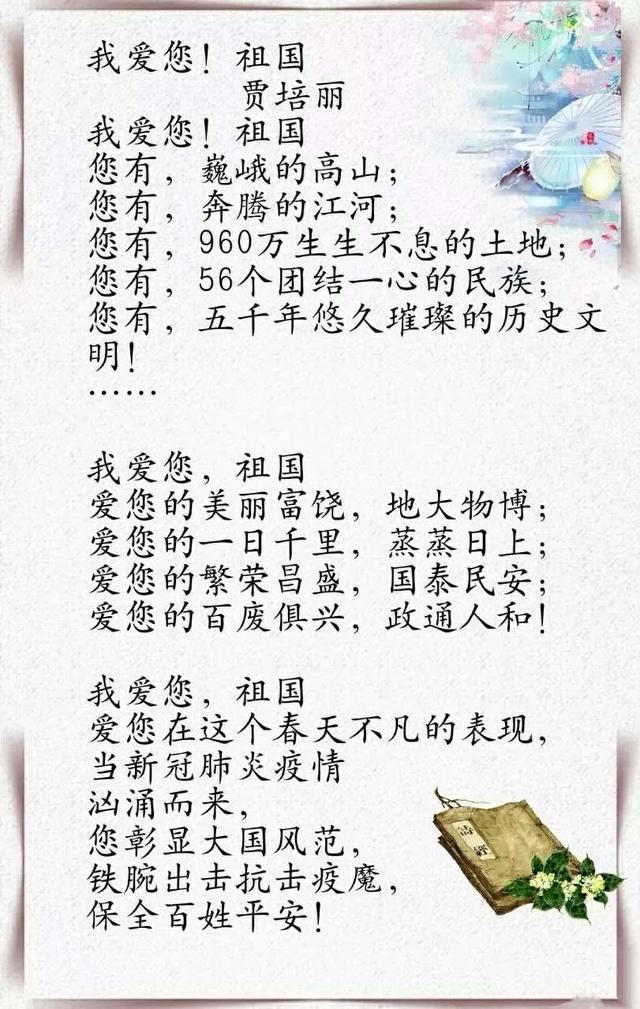 我爱您！祖国
贾培丽
我爱您！祖国
您有，巍峨的高山；
您有，奔腾的江河；
您有，960万生生不息的土地；
您有，56个团结一心的民族；
您有，五千年悠久璀璨的历史文
明！
……
我爱您，祖国
爱您的美丽富饶，地大物博；
爱您的一日千里，蒸蒸日上；
爱您的繁荣昌盛，国泰民安；
爱您的百废俱兴，政通人和！
我爱您，祖国
爱您在这个春天不凡的表现，
当新冠肺炎疫情
汹涌而来，
您彰显大国风范，
铁腕出击抗击疫魔，
保全百姓平安！
詩經